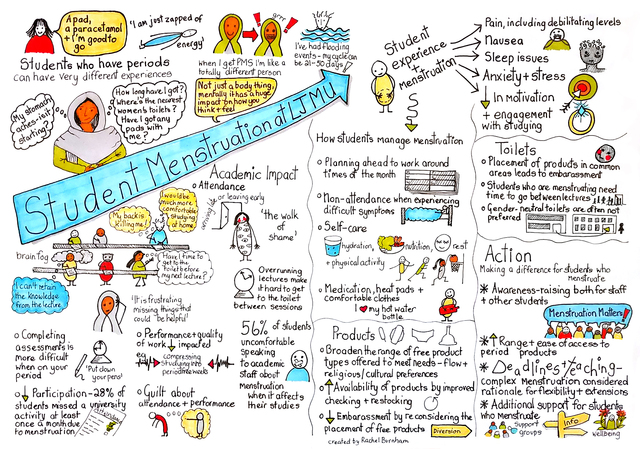 A pad,
a paracetamol
+ I'm good to
go
'I am just zapped of
energy'
grrr!
when I get PMS I'm like a
totally different person
I've had flooding
events - my cycle can
be 21-50 days!
Students who have periods
can have very different experiences
My stomach
aches - is it
starting?
How long have I got?
Where's the nearest
women's toilets?
Have I got any
pads with
me?
Not just a body thing,
mentally it has a huge
impact on how you
think + feel
Student Menstruation at LJMU
Student
experience
+
Menstruation
Pain, including debilitating levels
Nausea
Sleep issues
Anxiety + stress
In motivation
+ engagement
with studying
Academic Impact
Attendance
arriving late or leaving early
'the walk
of
shame'
My back is
killing me!
I would be
much more
comfortable
studying
at home
brain fog
Have I time to
get to the
toilet before
my next lecture?
I can't retain
the knowledge
from the lecture
'It is frustrating
missing things that
can be helpful'
Overrunning
lectures make
it hard to get
to the toilet
between sessions
Completing
assessments is
more difficult
when on your
period
'Put down
your pens!'
Participation - 28% of
students missed a university
activity at least
once a month due
to menstruation
Performance + quality
of work impacted
Compressing
studying into
period free weeks
Guilt about
attendance + performance
56% of students
uncomfortable
speaking
to academic
staff about
menstruation
when it affects
their studies
How students manage menstruation
Planning ahead to work around
times of the month
Non-attendance when experiencing
difficult symptoms
Self-care
hydration,
nutrition,
rest
+ physical activity
Medication, heat pads +
comfortable clothes
I my hot water
bottle
Products
Broaden the range of free product
types offered to meet needs - flow +
religious/cultural preferences
Availability of products by improved
checking + restocking
Embarrassment by re considering the
placement of free products
Diversion
created by Rachel Burnham
Toilets
Placement of products in common
areas leads to embarrassment
Students who are menstruating need
time to go between lectures
Gender-neutral toilets are often not
preferred
Action
Making a difference for students who
menstruate
Awareness-raising both for staff
+ other students
Menstruation Matters!
Range + ease of access to
period products
Deadlines + teaching -
complex Menstruation considered
rationale for flexibility + extensions
Additional support for students
who menstruate
support
groups
Info
wellbeing